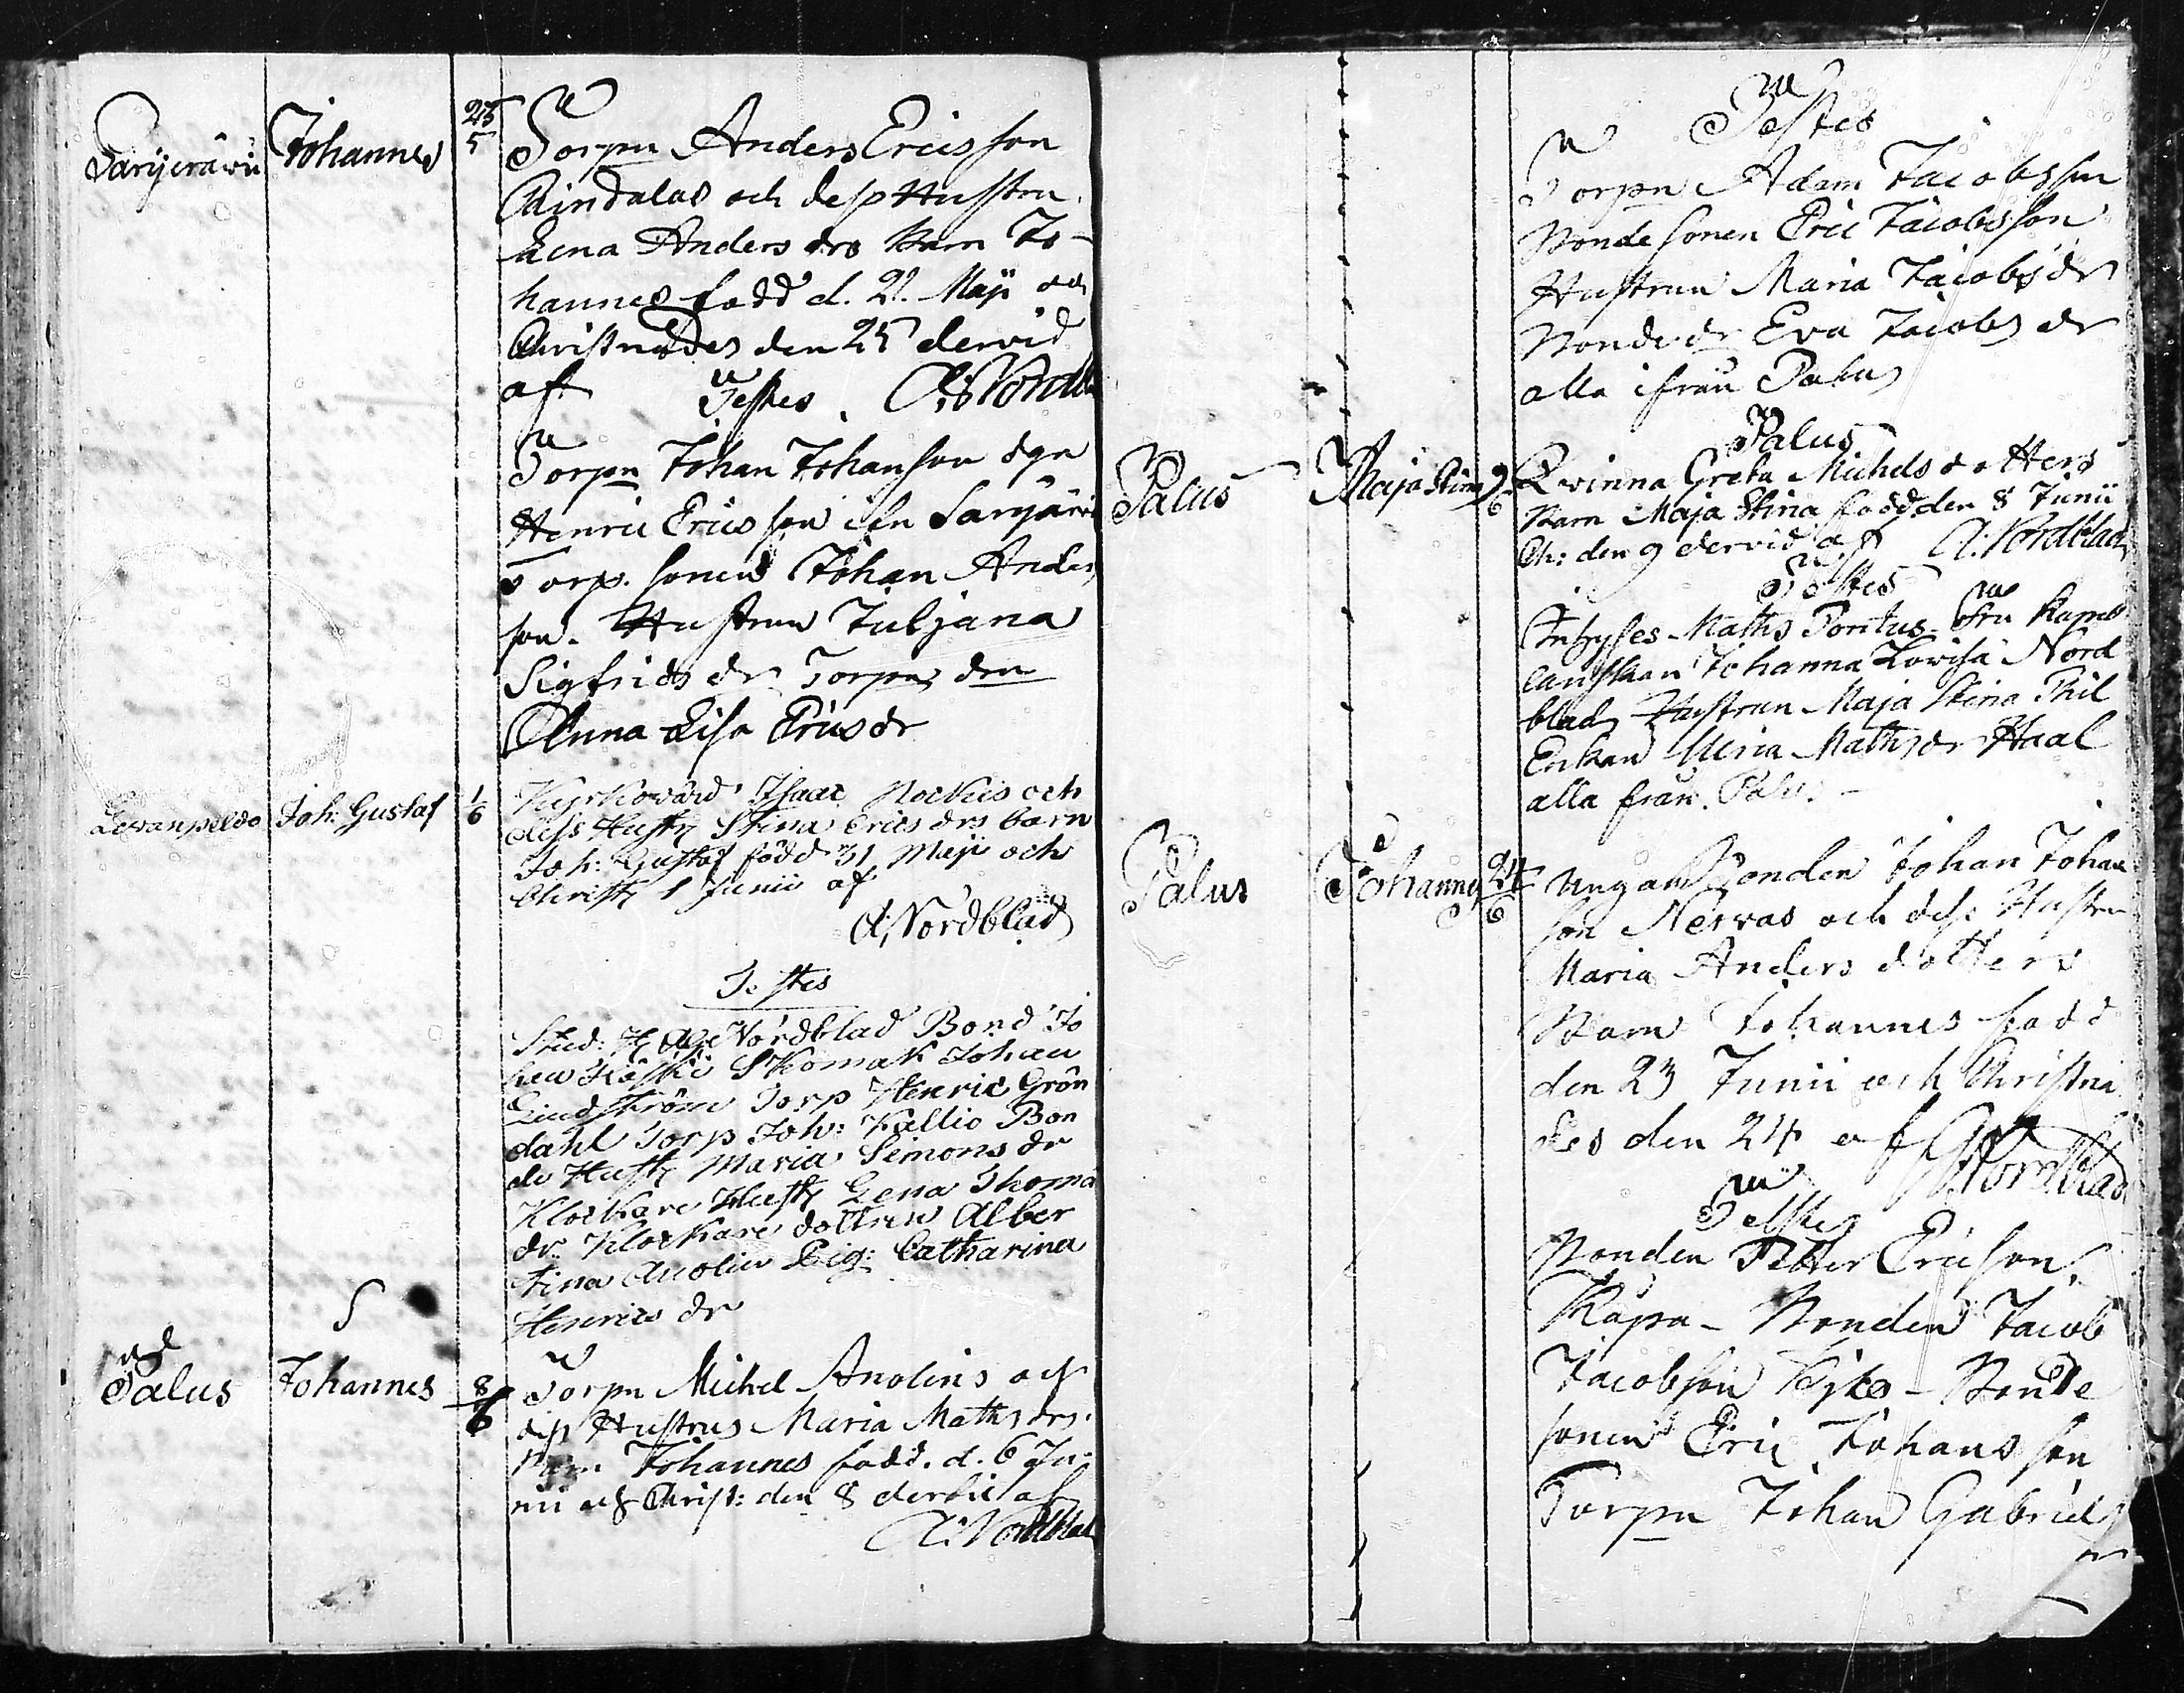 Johannes
25
5
Torpn Anders Ericsson
och dess Hustru
Lena Anders drs Barn Jo-
hannes född d. 21. Maji och
Christnades den 25 dervid
af Testes. A: Nordblad
Torpn Johan Johansson
Henric Ericsson
Torp. sonen Johan Anders
son. Hustrun Juljana
Sigfrids dr Torpn
Anna Lisa Erics dr
Lewanpeldo
Joh: Gustaf
1
6
Kyrkovärd Isaac och
dess Hustr Stina Erics drs barn
Joh: Gustaf född 31 Maji och
Christ 1 Junii af
A: Nordblad
Testes
Stud: Nordblad Bond Jo
han Koski Skomak Johan
Lindström Torp Henric Grön
dahl Torp Joh: Kallio Bon
de Hustr Maria Simons dr
Klockare Hustr Lena Thoma
dr Klockare dottren Alber
tina Pig: Catharina
Henrics dr
Palus
Johannes
8
6
Torpn Michel Anolins och
dess Hustrus Maria Maths drs.
Barn Johannes född. d. 6 Ju-
nii och Christ: den 8 af
A: Nordblad
Testes
Torpn Adam Jacobsson
Bonde sonen Eric Jacobsson
Hustrun Maria Jacobs dr
Bonde dr Eva Jacobs dr
alla ifrån Palus
Palus
Palus
Maja Stina
9
6
Qvinna Greta Michels dotters
Barn Maja Stina född den 8 Junii
Ch: den 9 dervid af A: Nordblad
Testes
Maths Pontus
Johanna Lowisa Nord
blad Hustrun Maja Stina Phil
Enkan Maria Maths dr Haal
alla från Palus.
Palus
Johannes
24
6
Unga Bonden Johan Johan
son Nervas och dess Hustru
Maria Anders dotters
Barn Johannes född
den 23 Junii och Christna
des den 24 af
A: Nordblad
Testes
Bonden Petter Ericson
Kåpra - Bonden Jacob
Jacobson - Bonde
sonen Eric Johansson
Torpn Johan Gabriels